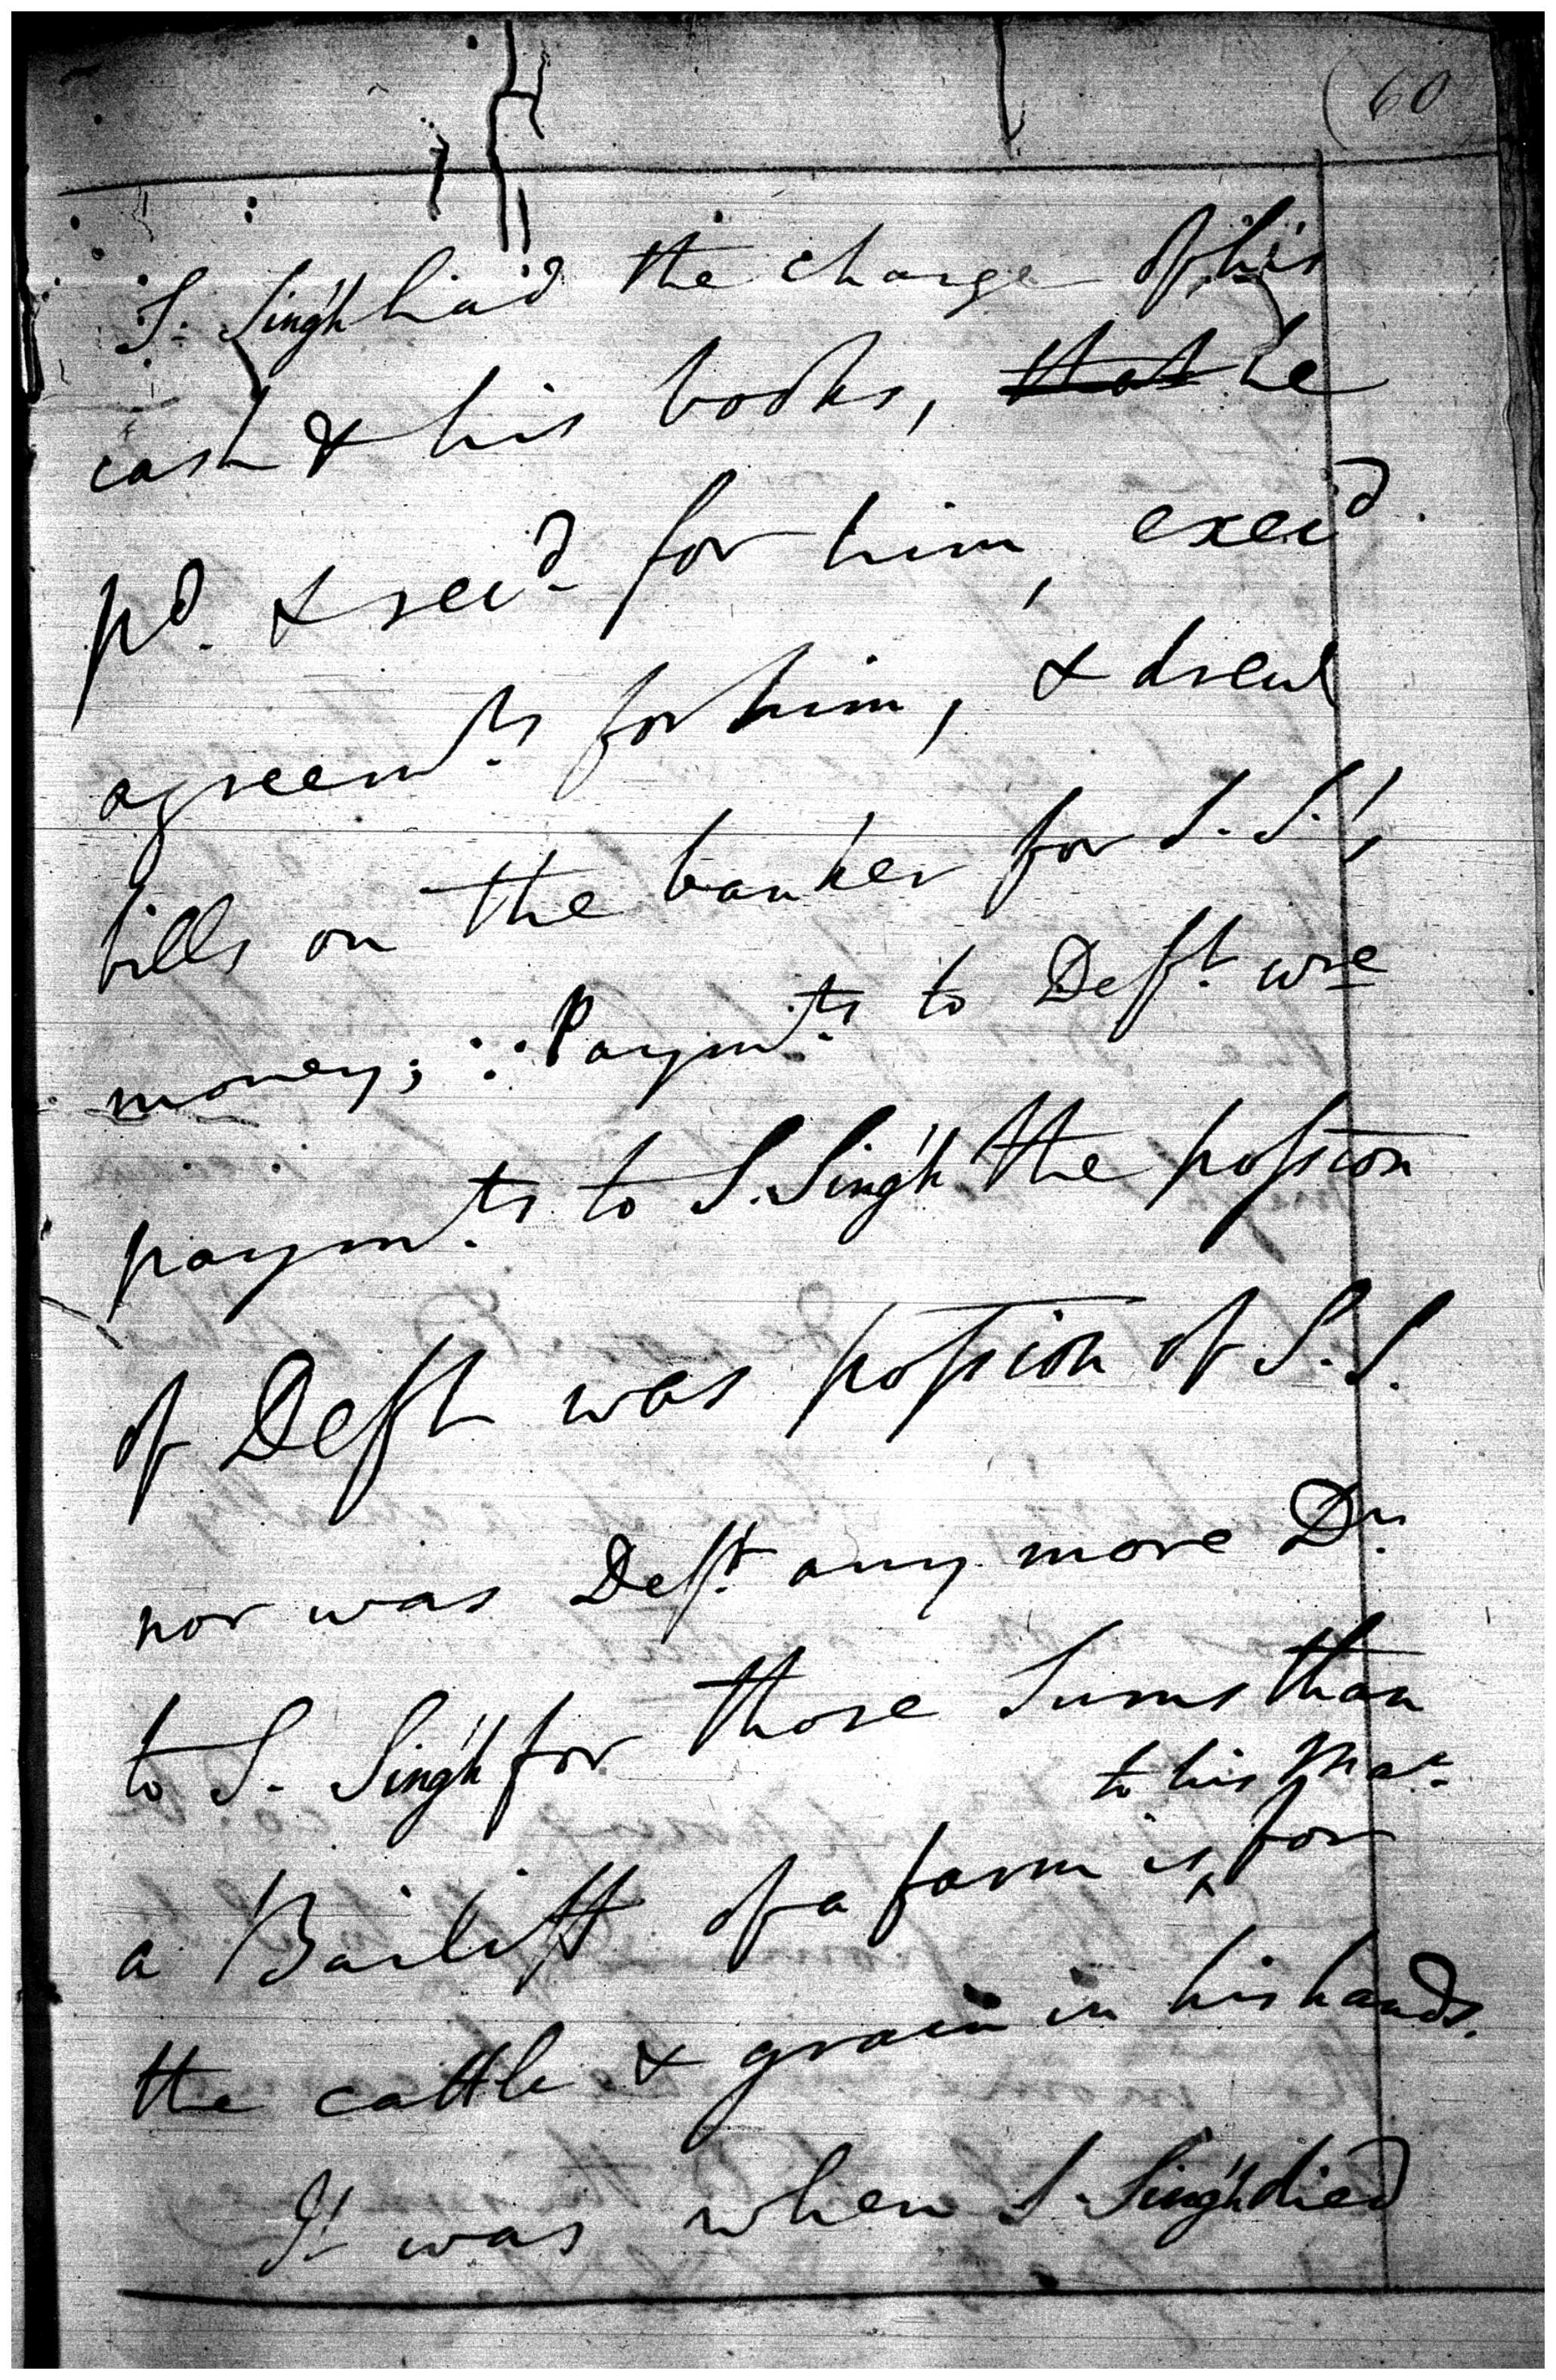 (60
S. Singh had the charge of his
cash & his books, that he
pd. & recd. for him, execd.
agreemts. for him, & drew
bills on the banker for S. S.'s
money; ∵ Paymts. to Deft. wre
paymts. to S. Singh the possion
of Deft was possion of S. S.
nor was Deft. any more Dr.
to S. Singh for those Sums than
a Bailiff of a farm is to his Mar. for
the cattle & grain in his hands.
It was when S. Singh died